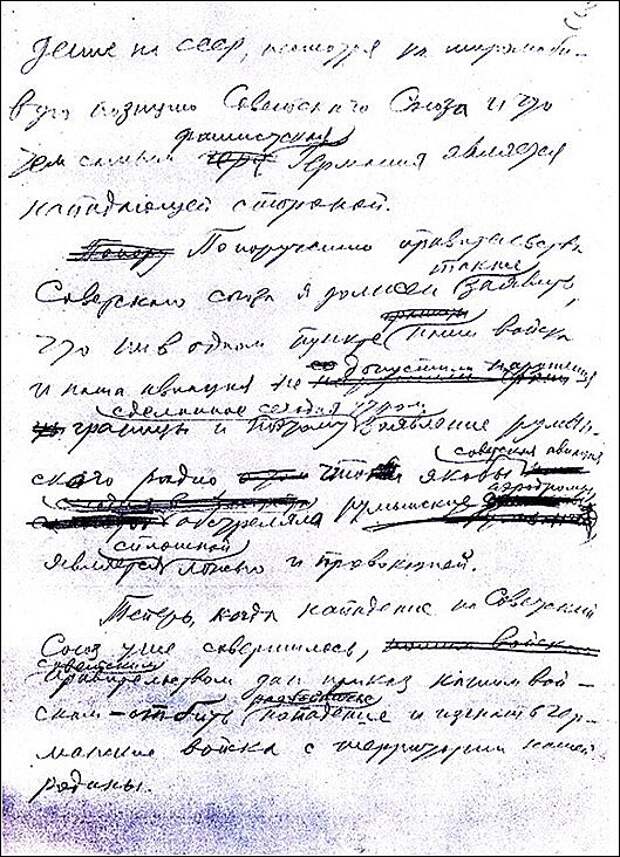 дение на СССР, несмотря на миролюби-
вую позицию Советского Союза и что
фашистская
тем самым Германия является
нападающей стороной.
Попору По поручению правительства
также
Советского союза я должен заявить,
что ни в одном пункте наши войска
и наша авиация не допустили нарушения
сделанное сегодня утром
границы и поэтому заявление румын-
советская авиация
ского радио что якобы
аэродромы
обстреляла румынские
сплошной
является ложью и провокацией.
Теперь, когда нападение на Советский
Союз уже совершилось, наши войск
советским
Правительством дан приказ нашим вой-
скам – отбить нападение и изгнать гер-
манские войска с территории нашей
родины.